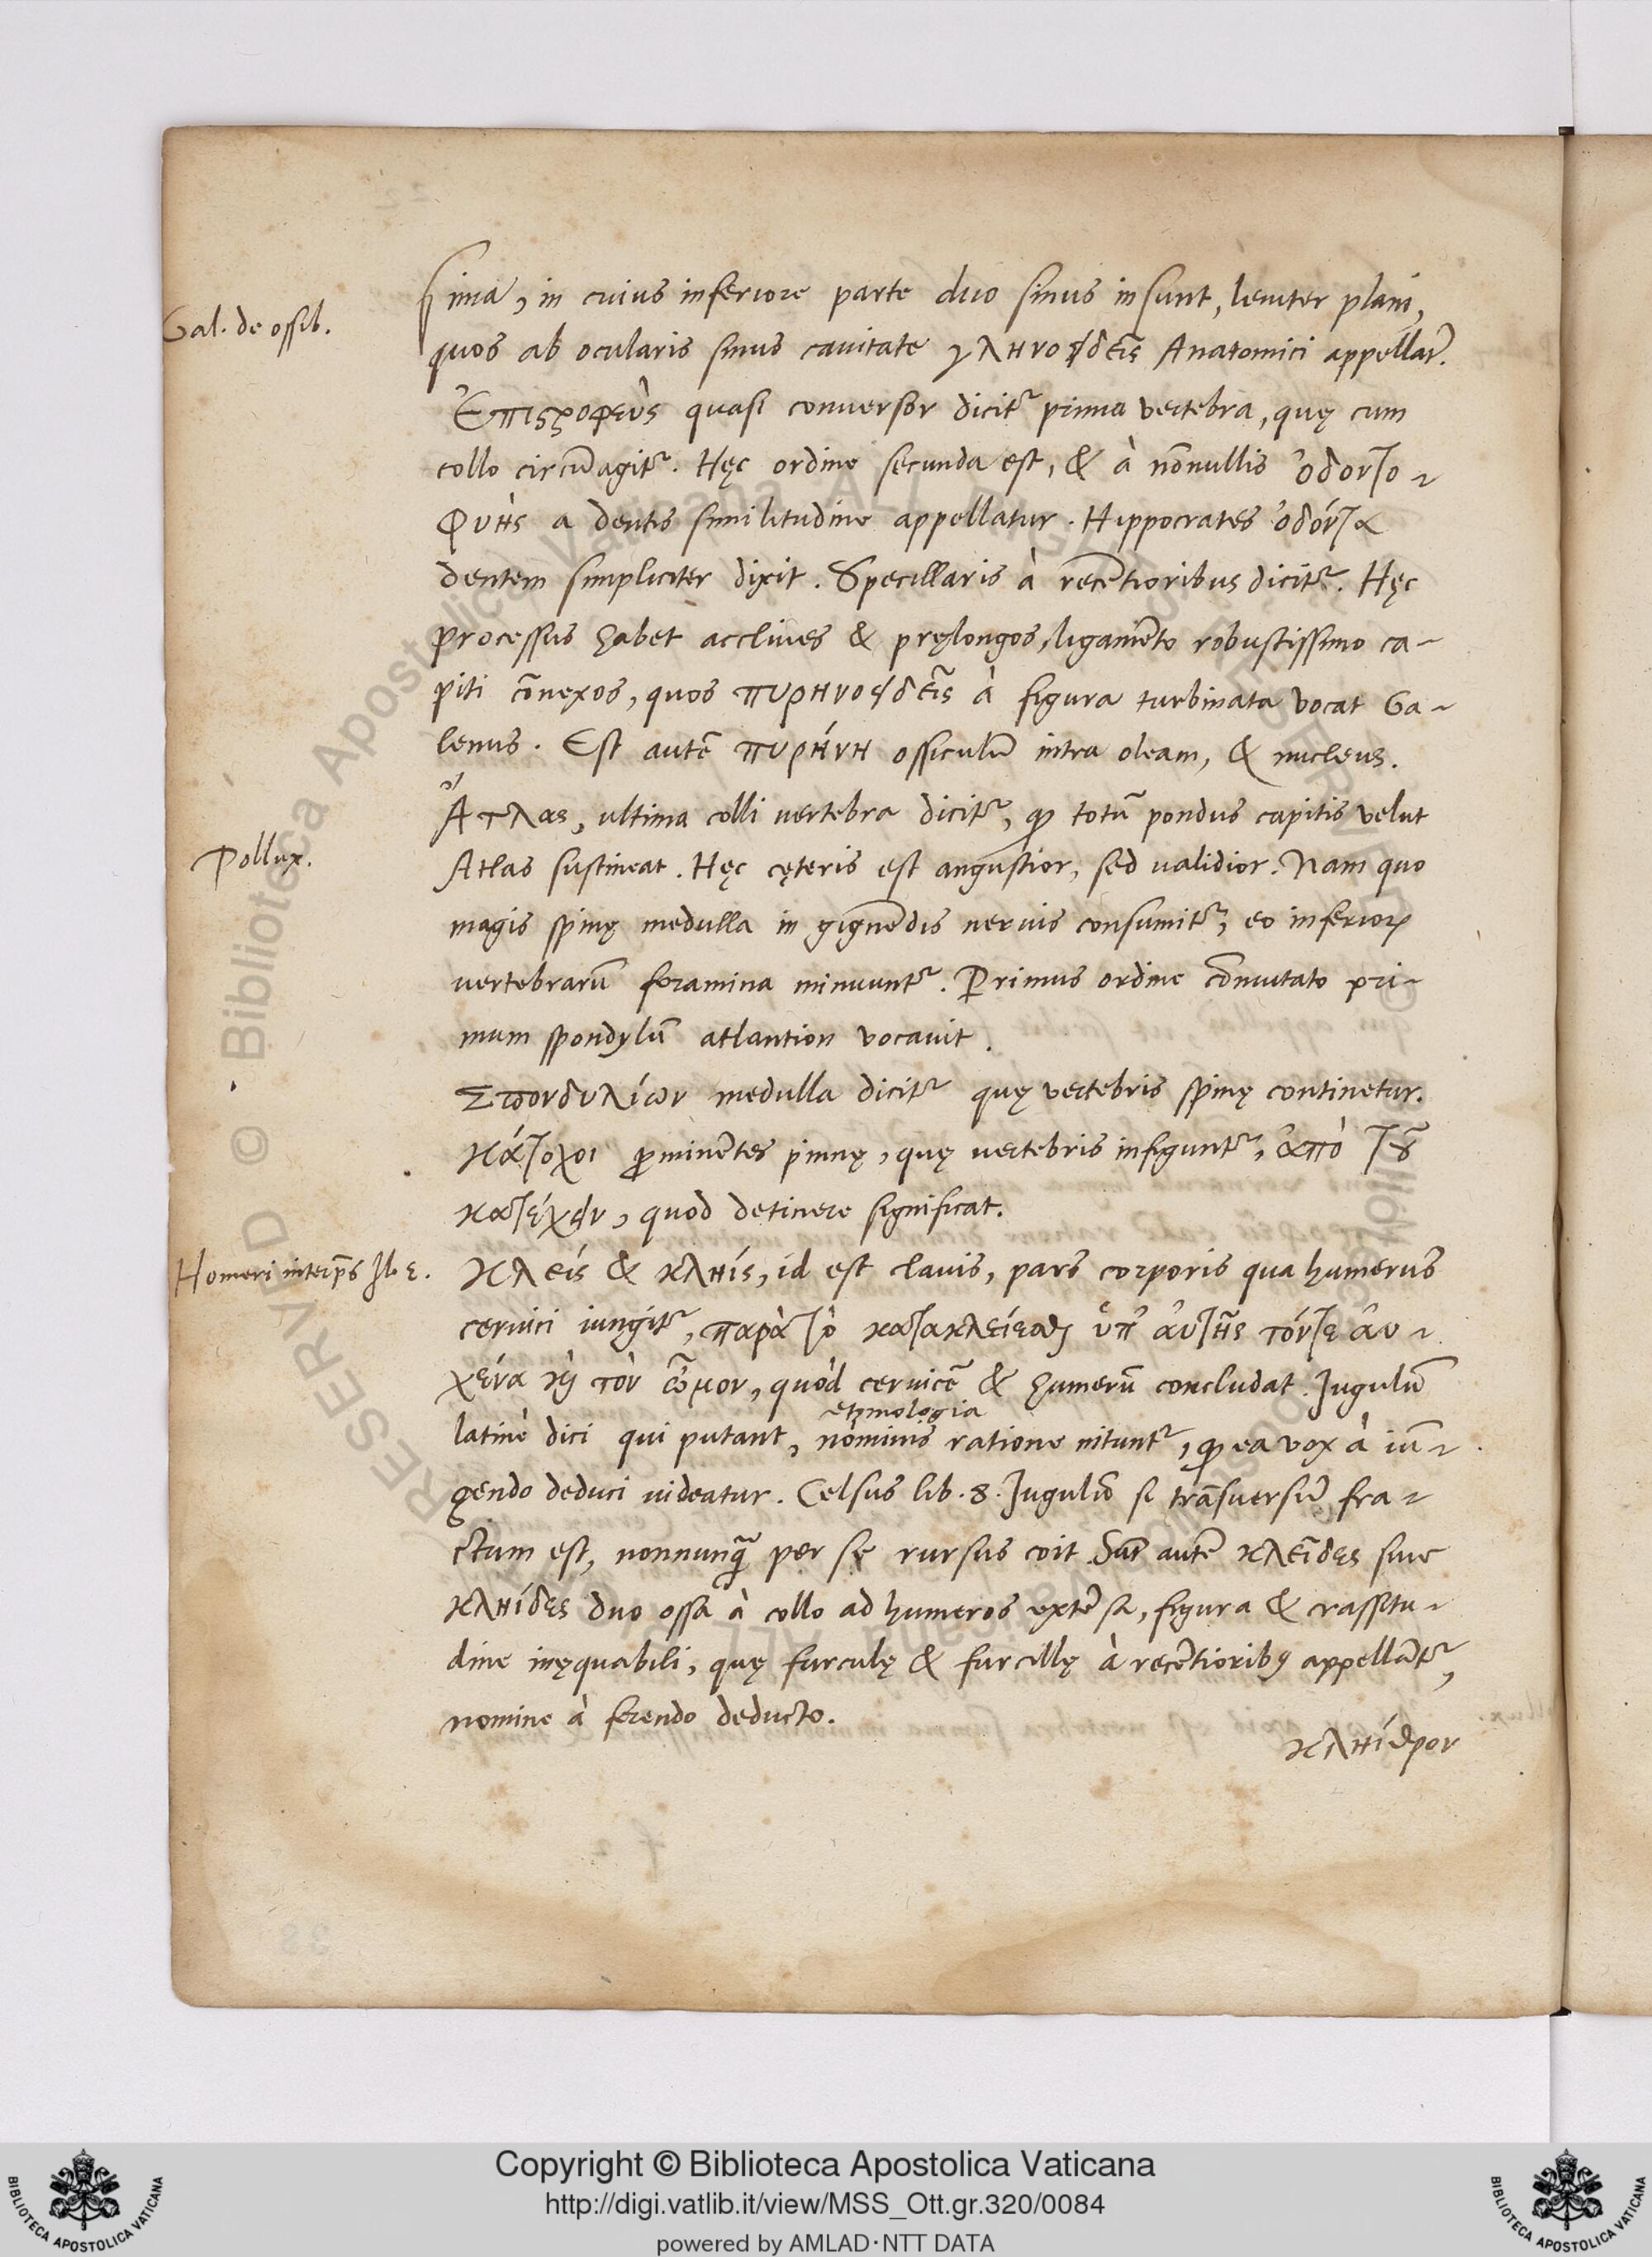 sima, in cuius inferiore parte duo sinus insunt, leuiter plani,
Gal. de ossib.
quos ab ocularis sinus cauitate γληνοειδεῖς Anatomici appellāt.
Ἐπιστροφεὺς quasi conuersor dicit᷑ pinna vertebra, quę cum
collo circūagit᷑. Hęc ordine secunda est, & à nōnullis ὀδοντο-
φυὴς a dentis similitudine appellatur. Hippocrates ὀδόντα
dentem simpliciter dixit. Specillaris à recētioribus dicit᷑. Hęc
processus habet acclines & pręlongos, ligamēto robustissimo ca-
piti cōnexos, quos πυρηνοειδεῖς à figura turbinata vocat Ga-
lenus. Est autē πυρήνη ossiculū intra oleam, & nucleus.
Ἄτλας, ultima colli vertebra dicit᷑, ꝙ totū pondus capitis velut
Pollux.
Atlas sustineat. Hęc cęteris est angustior, sed validior. Nam quo
magis spinę medulla in gignēdis neruis consumit᷑, eo inferioꝝ
vertebrarū foramina minuunt᷑. Primus ordine cōmutato pri-
mum spondylū atlantion vocauit.
Σπονδυλίων medulla dicit᷑ quę vertebris spinę continetur.
κάτοχοι ꝓminētes pinnę, quę vertebris infigunt᷑, ἀπὸ τοῦ
κατέχειν, quod detinere significat.
Homeri interp̄s Il. ε.
Κλείς & κληίς, id est clauis, pars corporis qua humerus
ceruici iungit᷑, παρὰ τὸ κατακλείεσθαι ὑπ' αὐτῆς τόν τε αὐ-
χένα καὶ τὸν ὦμον, quòd ceruicē & humerū concludat. Jugulū
etymologia
latinè dici qui putant, nominis ratione nitunt᷑, ꝙ ea vox à iū-
gendo deduci uideatur. Celsus lib. 8. Jugulū si trāsuersū fra-
ctum est, nonnunq̄ per se rursus coit. Sūt autē κλεῖδες siue
κληίδες duo ossa à collo ad humeros extēsa, figura & crassitu-
dine inęquabili, quę furculę & furcillę à recētioribꝰ appellāt᷑,
nomine à ferendo deducto.
κλήιθρον
Copyright © Biblioteca Apostolica Vaticana
http://digi.vatlib.it/view/MSS_Ott.gr.320/0084
powered by AMLAD·NTT DATA